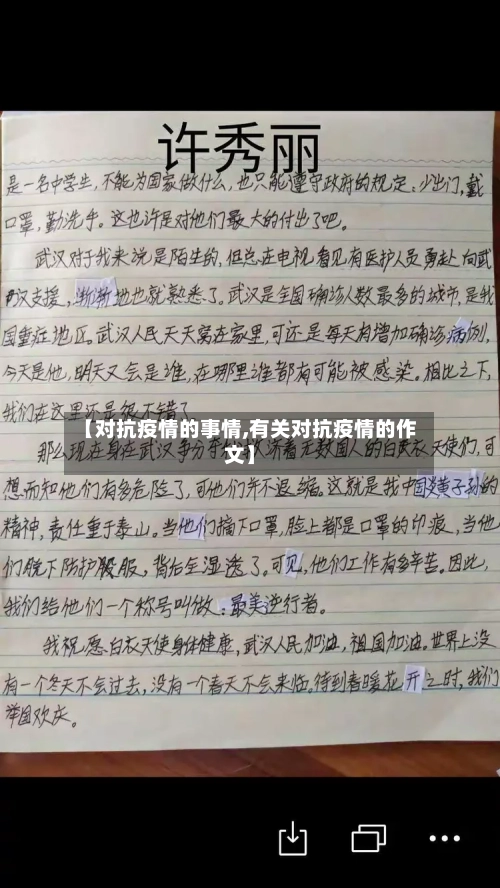 许秀丽
是一名中学生,不能为国家做什么,也只能遵守政府的规定:少出门,戴
口罩,勤洗手。这也许是对他们最大的付出了吧。
武汉对于我来说是陌生的,但总在电视看见有医护人员勇赴向武
汉支援,渐渐地也就熟悉了。武汉是全国确诊人数最多的城市,是我
国重症地区。武汉人民天天窝在家里,可还是每天有增加确诊病例,
今天是他,明天又会是谁,在哪里谁都有可能被感染。相比之下,
我们在这里还是很不错了
【对抗疫情的事情,有关对抗疫情的作
文】
那么现在身在武汉争分夺 着无数国人的白衣天使们,可
想而知他们有多危险了,可他们并不退缩。这就是我中国炎黄子孙的
精神,责任重于泰山。当他们摘下口罩,脸上都是口罩的印痕,当他
们脱下防护服,背后全湿透了。可见,他们工作有多辛苦。因此,
我们给他们一个称号叫做:最美逆行者。
我祝愿白衣天使身体健康,武汉人民加油,祖国加油。世界上没
有一个冬天不会过去,没有一个春天不会来临。待到春暖花开之时,我们
举国欢庆。